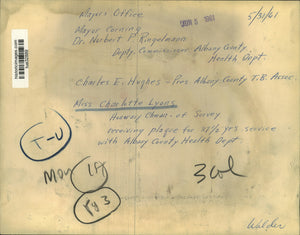 Mayor's Office
JUN 5 1961
5/31/61
Mayor Corning
Dr. Norbert P. Ringelmann
Deputy Commissioner Albany County
Health Dept.
Charles E. Hughes - Pres. Albany County T.B. Assoc.
Miss Charlotte Lyons
Honorary Chmn. of Survey
receiving plaque for 37½ yrs service
with Albany County Health Dept
T-U
May 1A
Pg 3
3 col
Walder